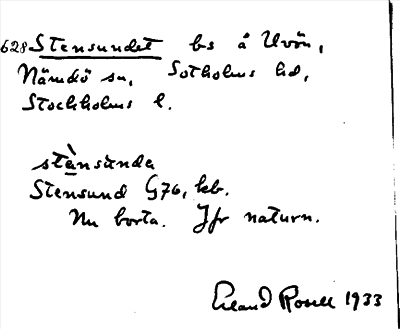 628 Stensundet bs å Uvön,
Nämdö sn, Sotholms hd,
Stockholms l.
stànsunda
Stensund G76, kb.
Nu borta. Jfr naturn.
Erland Rosell 1933